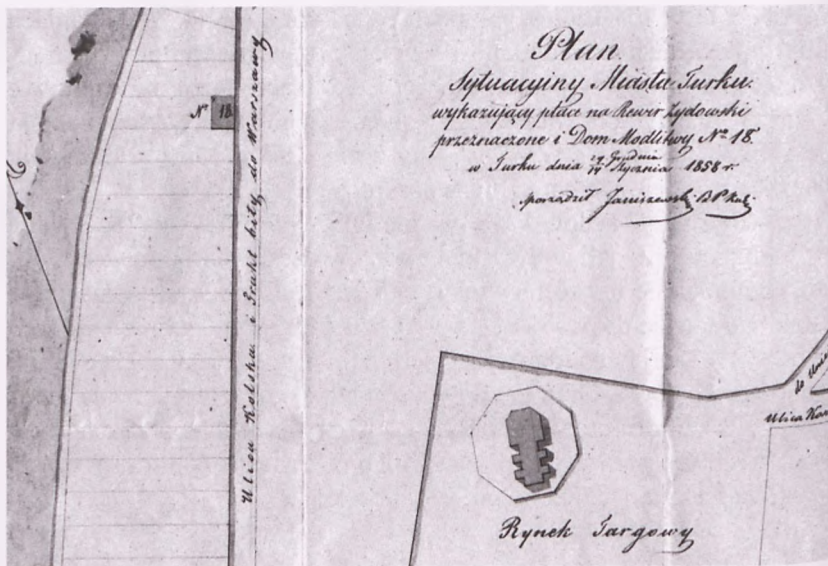 Plan
Sytuacyjny Miasta Turku
wykazujący place na Rewir Żydowski
przeznaczone i Dom Modlitwy No 18.
w Turku dnia 29 Grudnia / Stycznia 1858 r.
sporządził Janiszewski
No 18
Ulica Kolska i Trakt bity do Warszawy
do
Ulica
Rynek Targowy